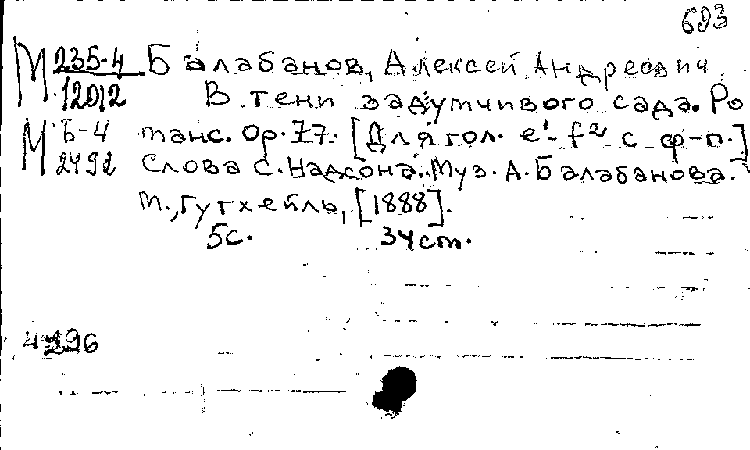 683
М 235-4 Балабанов, Алексей Андреевич
12012 В тени задумчивого сада. Ро
М Б-4 манс. Ор. 77. [Для гол. e¹-f² с ф-п.]
2492 Слова С. Надсона. Муз. А. Балабанова.
М., Гутхейль, [1888].
5с. 34 см.